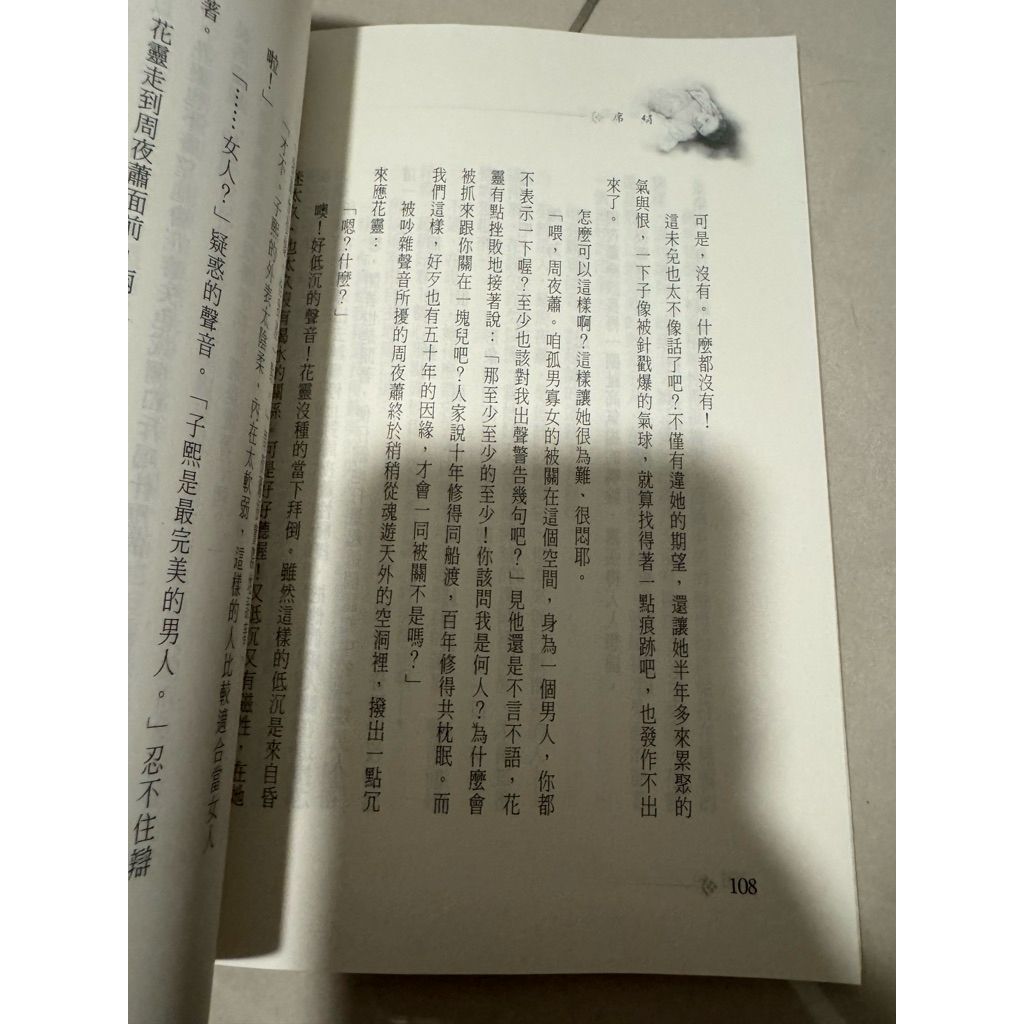 席絹
可是，沒有。什麼都沒有！
這未免也太不像話了吧？不僅有違她的期望，還讓她半年多來累聚的
氣與恨，一下子像被針戳爆的氣球，就算找得著一點痕跡吧，也發作不出
來了。
怎麼可以這樣啊？這樣讓她很為難、很悶耶。
「喂，周夜蕭。咱孤男寡女的被關在這個空間，身為一個男人，你都
不表示一下喔？至少也該對我出聲警告幾句吧？」見他還是不言不語，花
靈有點挫敗地接著說：「那至少至少的至少！你該問我是何人？為什麼會
被抓來跟你關在一塊兒吧？人家說十年修得同船渡，百年修得共枕眠。而
我們這樣，好歹也有五十年的因緣，才會一同被關不是嗎？」
被吵雜聲音所擾的周夜蕭終於稍稍從魂遊天外的空洞裡，撥出一點冗
來應花靈：
「嗯？什麼？」
噢！好低沉的聲音！花靈沒種的當下拜倒。雖然這樣的低沉是來自昏
可是好好聽喔！又低沉又有磁性，在她
108
啦！」
子熙的外表太陰柔，內在太軟弱，這樣的人比較適合當女人
「……女人？」疑惑的聲音。「子熙是最完美的男人。」忍不住辯
著。
花靈走到周夜蕭面前，兩